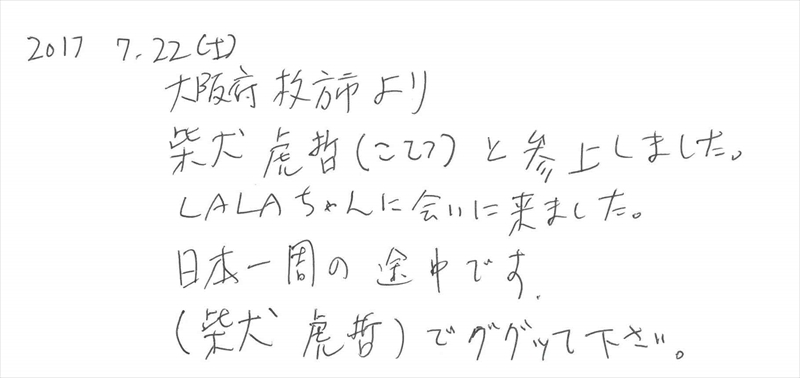 2017 7.22(土)
大阪府 枚方市 より
柴犬 虎哲(こてつ) と 参上しました。
LALAちゃんに会いに来ました。
日本一周の 途中です.
(柴犬 虎哲)でググッて下さい。